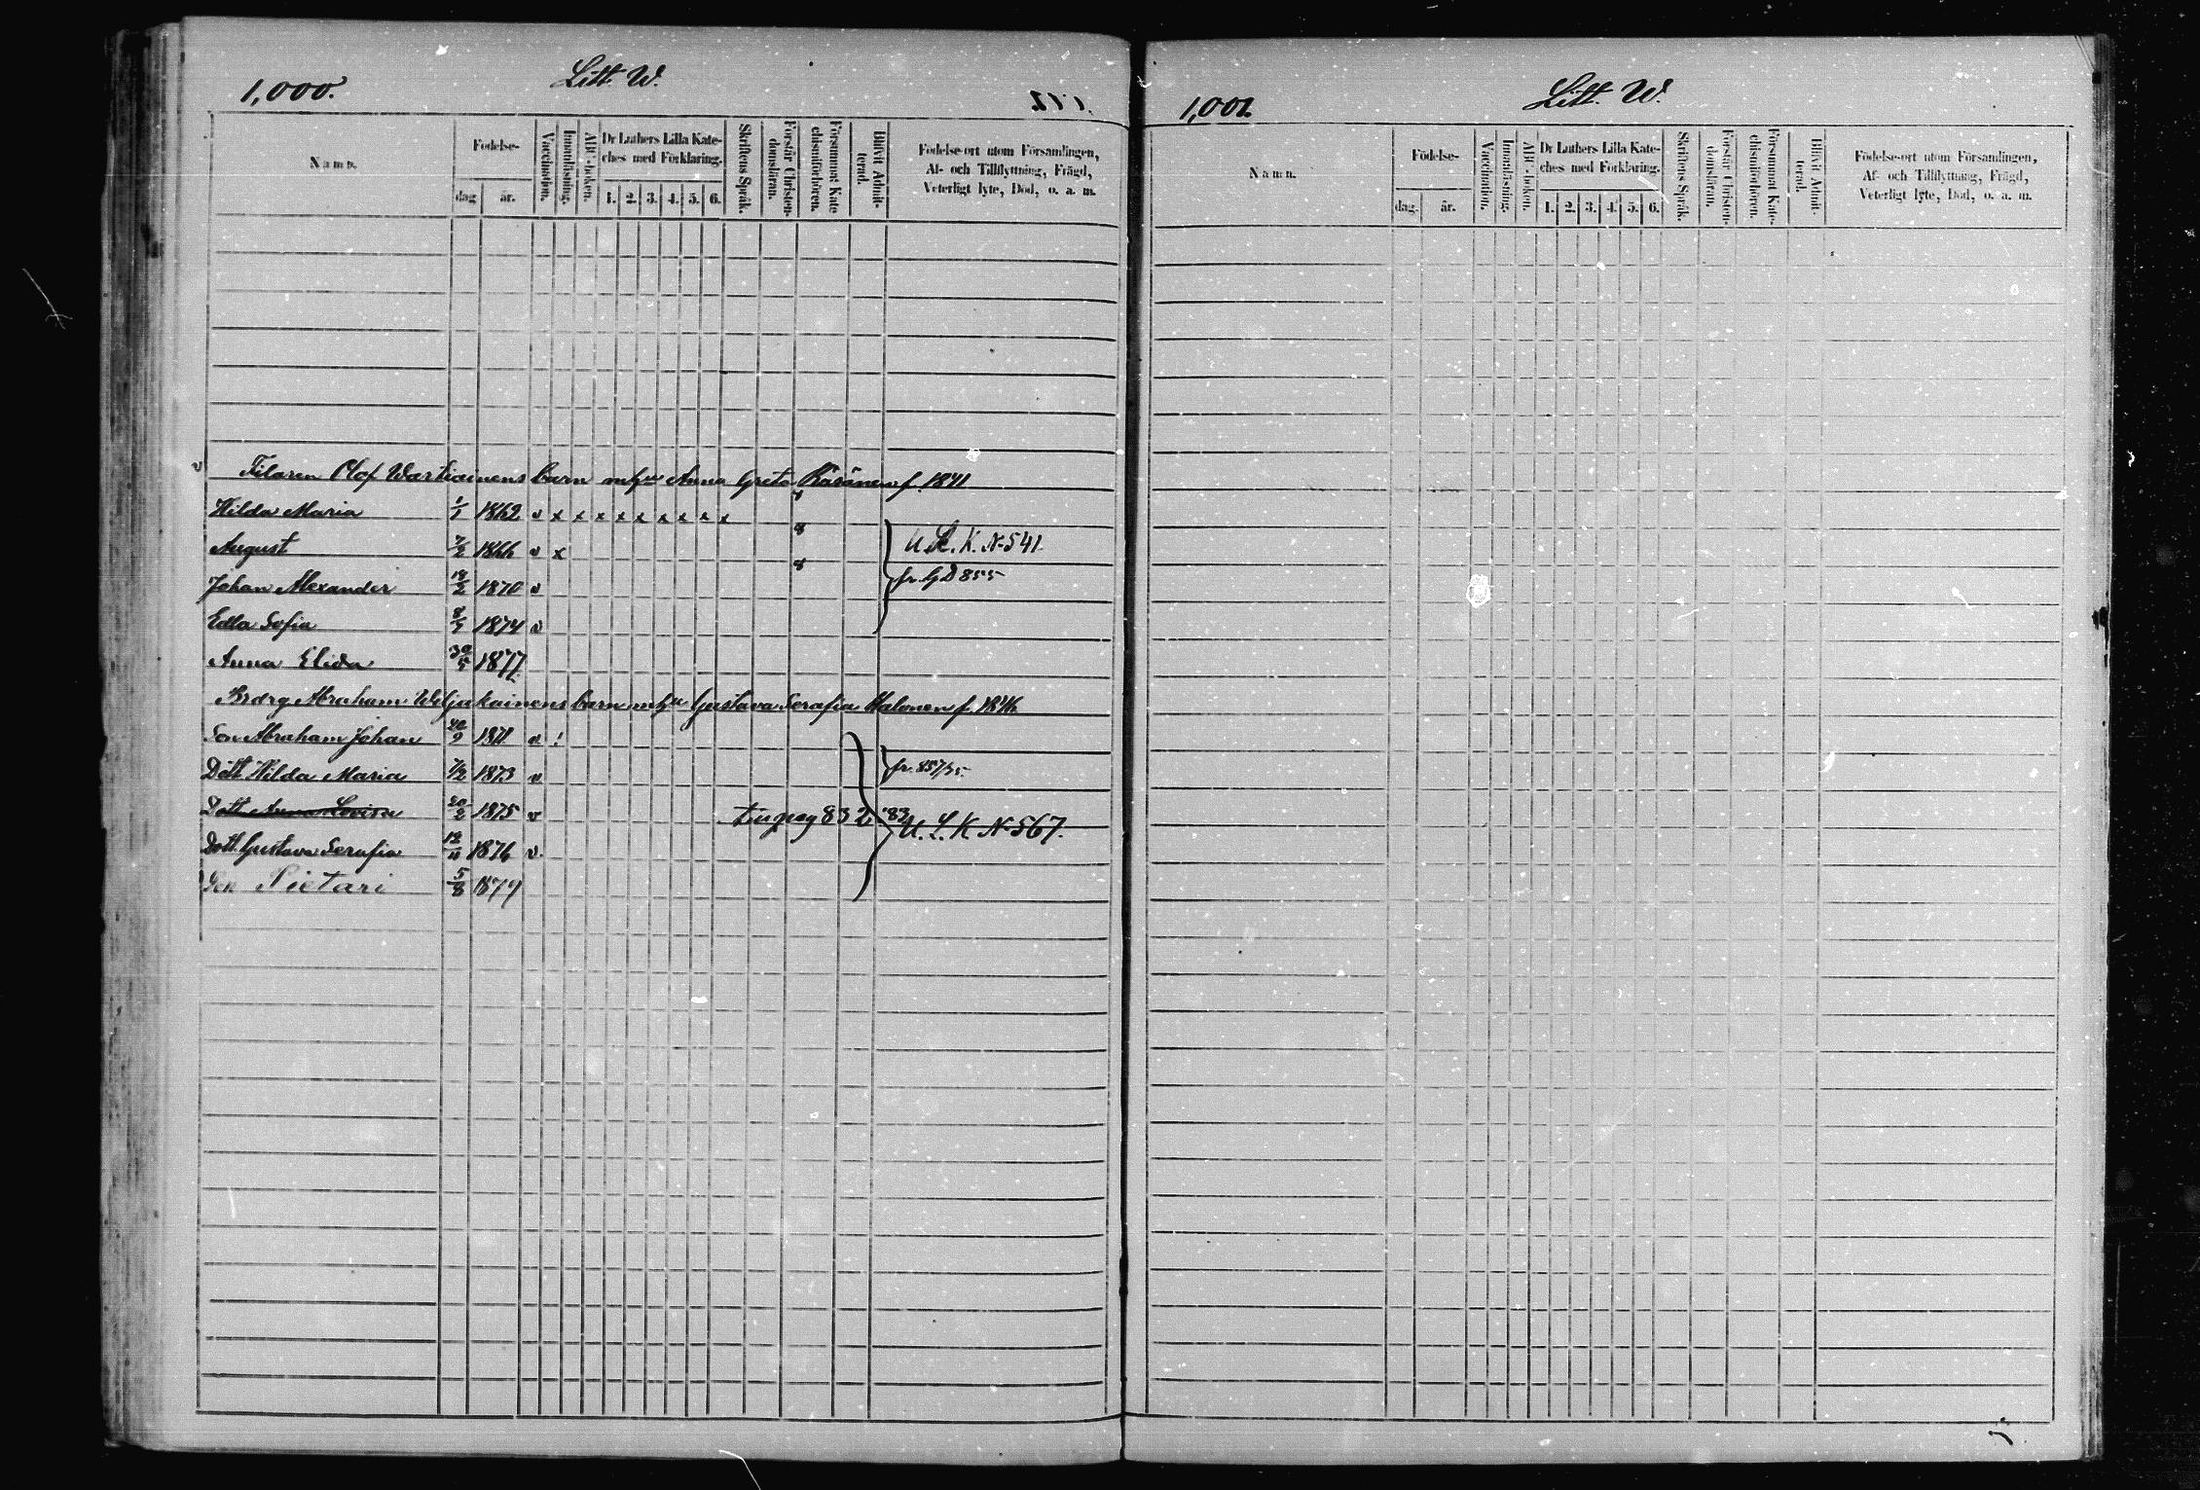 1,000. Litt. W.
Namn. Födelse- dag år. Vaccination. Innanläsning. ABC-boken. Dr Luthers Lilla Kateches med Förklaring. 1. 2. 3. 4. 5. 6. Skriftens Språk. Förstår Christendomsläran. Försummat Katechismiförhören. Blifvit Admitterad. Födelse-ort utom Församlingen, Af- och Tillflyttning, Frägd, Veterligt lyte, Död, o. a. m.
Filaren Olof Wartiainens barn mhu Anna Greta Räsänen f. 1841
Hilda Maria 1/1 1862 v x x x x x x x x x
August 7/2 1866 v x U. K. N. 541
Johan Alexander 18/2 1870 v fr. GD 855
Edla Sofia 8/7 1874 v
Anna Elida 30/5 1877
Abraham Weljakainens barn mhu Gustava Serafia Halonen f. 1846
Son Abraham Johan 9 1871 v !
Dott Hilda Maria 7/2 1873 v fr. 857/55
Dott Anna Lovisa 20/2 1875 v 832 '83 U. L. K. N. 567.
Dott Gustava Serafia 12/11 1876 v
Son Pietari 5/8 1879
1,001. Litt. W.
Namn. Födelse- dag. år. Vaccination. Innanläsning. ABC-boken. Dr Luthers Lilla Kateches med Förklaring. 1. 2. 3. 4. 5. 6. Skriftens Språk. Förstår Christendomsläran. Försummat Katechismiförhören. Blifvit Admitterad. Födelse-ort utom Församlingen, Af- och Tillflyttning, Frägd, Veterligt lyte, Död, o. a. m.